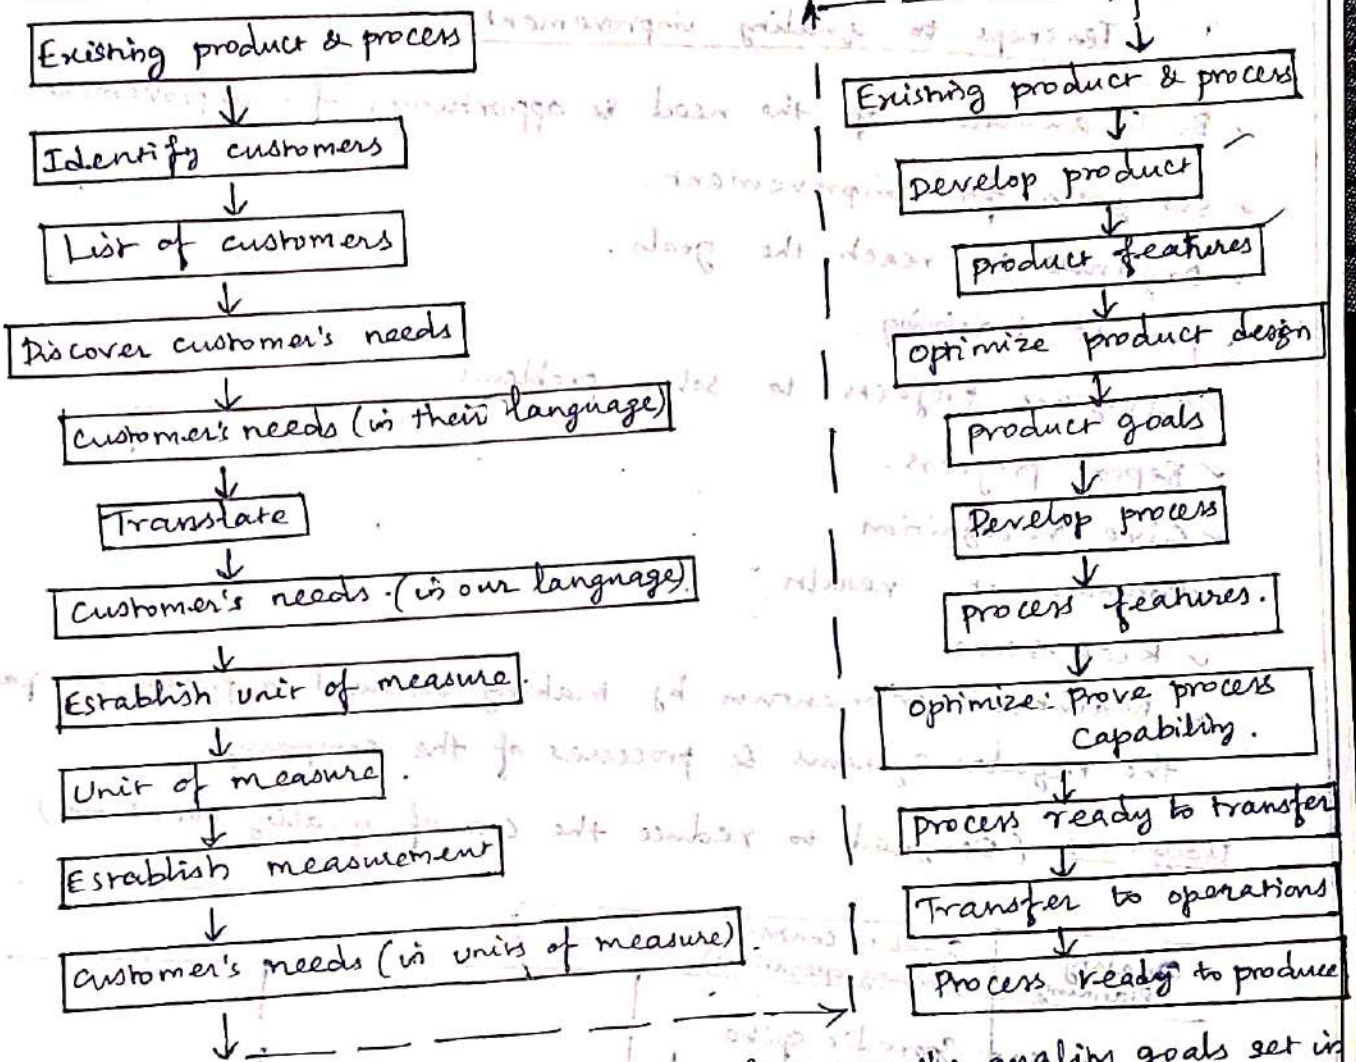 Existing product & process
Identify customers
List of customers
Discover customer's needs
Customer's needs (in their language)
Translate
Customer's needs. (in our language).
Establish unit of measure.
Unit of measure.
Establish measurement
Customer's needs (in units of measure).
Existing product & process
Develop product
product features
Optimize product design
product goals
Develop process
process features.
Optimize: Prove process
Capability.
process ready to transfer
Transfer to operations
Process ready to produce
quality goals set in